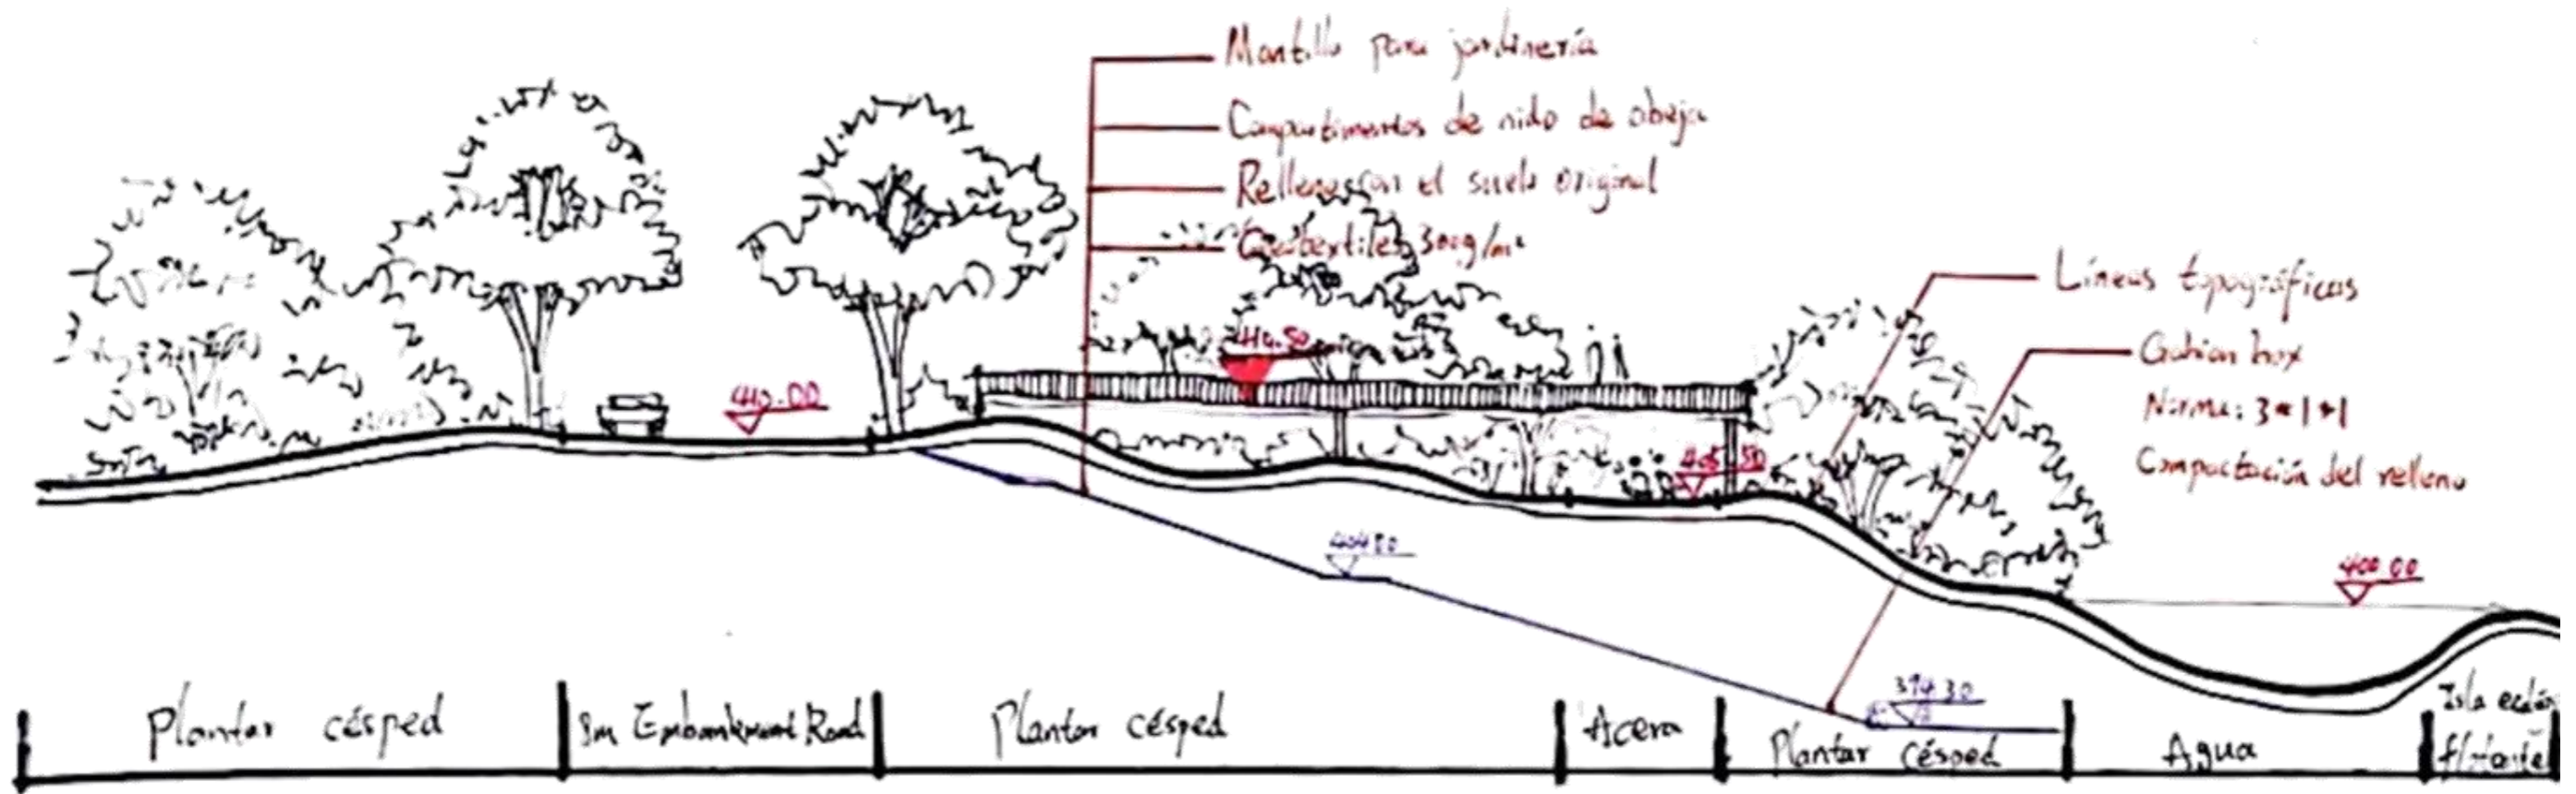 Mantillo para jardinería
Compartimentos de nido de abeja
Relleno con el suelo original
Geotextiles, 300g/m²
Líneas topográficas
Gabion box
Norma: 3*1*1
Compactación del relleno
410.00
405.50
404.80
400.00
394.30
Plantar césped
8m Embankment Road
Plantar césped
Acera
Plantar césped
Agua
Isla
flotante